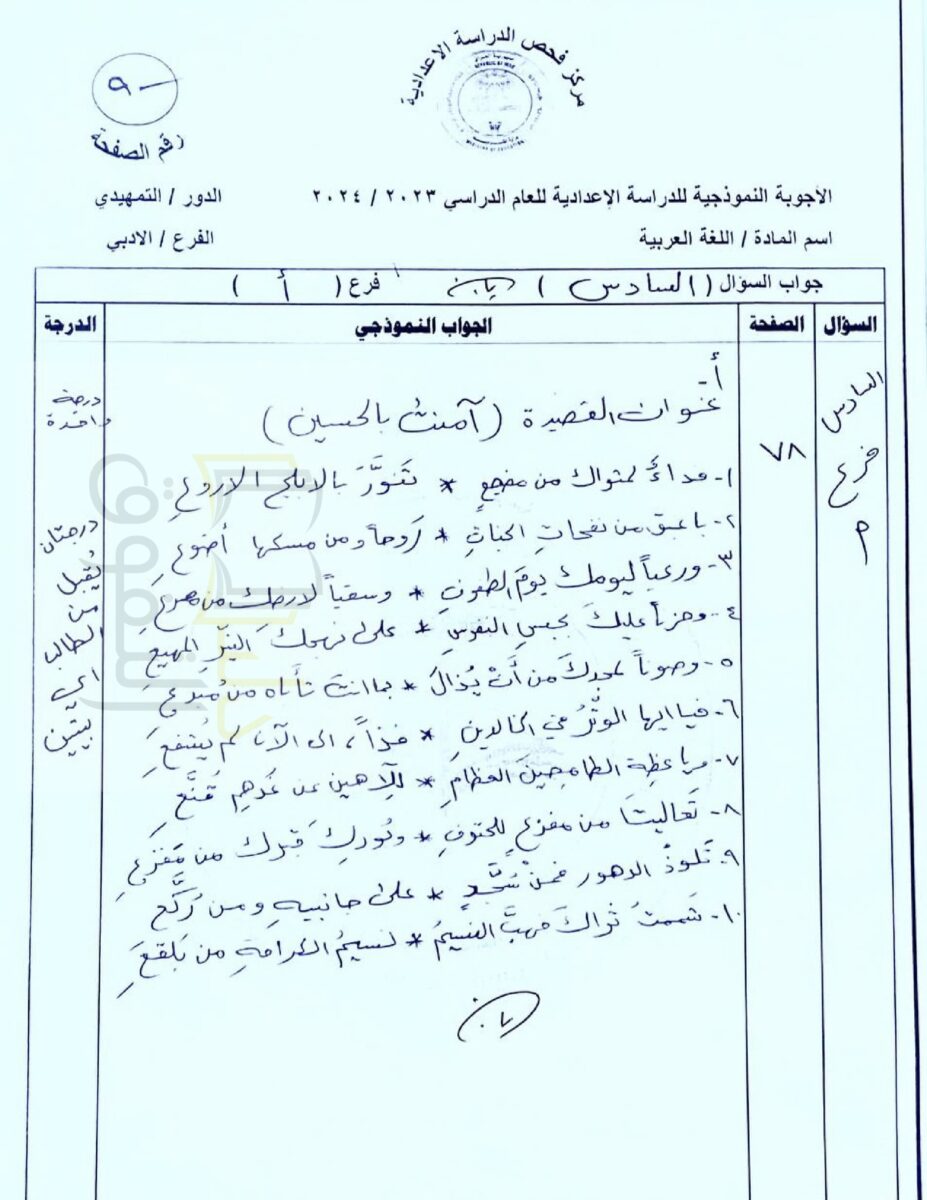 مركز فحص الدراسة الاعدادية
-٩-
رقم الصفحة
الأجوبة النموذجية للدراسة الإعدادية للعام الدراسي ٢٠٢٣ / ٢٠٢٤
الدور / التمهيدي
اسم المادة / اللغة العربية
الفرع / الادبي
جواب السؤال ( السادس ) فرع ( أ )
السؤال الصفحة الجواب النموذجي الدرجة
السادس
فرع
أ
٧٨
أ-
عنوان القصيدة (آمنتُ بالحسين)
١- فداءً لمثواك من مضجعِ * تَنَوَّرَ بالابلج الاروعِ
٢- باعبق من نفحاتِ الجنانِ * رَوحاً ومن مسكها أضوعِ
٣- ورعياً ليومك يومَ الطفوفِ * وسقياً لارضك من مصرعِ
٤- وحزناً عليكَ بحبسِ النفوسِ * على نهجكَ النيّرِ المهيعِ
٥- وصوناً لمجدكَ من أنْ يُذالَ * بما انتَ تأباه من مُبدعِ
٦- فيا ايها الوِتْرُ في الخالدينِ * فذاً، الى الآن لم يُشفعِ
٧- وياعظة الطامحينَ العظامِ * للاهين عن غَدِهِم قُنَّعِ
٨- تعاليتَ من مفزعٍ للحتوفِ * وبُورِكَ قبرك من مَفزعِ
٩- تلوذُ الدهور فمنْ سُجَّدٍ * على جانبيه ومن رُكَّعِ
١٠- شممتُ ثراكَ فهبَّ النسيمُ * نسيمُ الكرامةِ من بَلقعَِ
درجة
واحدة
درجتان
يُقبل
من
الطالب
اي
بيتين